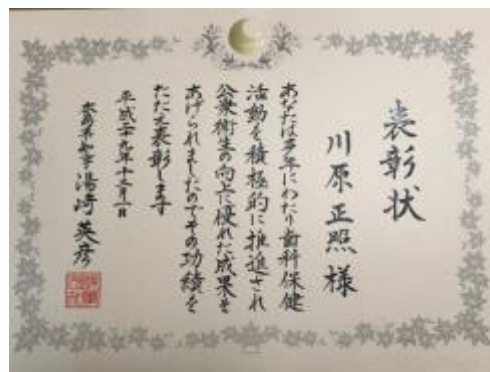 表彰状
川原正照様
あなたは多年にわたり歯科保健
活動を積極的に推進され
公衆衛生の向上に優れた成果を
あげられましたのでその功績を
たたえ表彰します
平成二十九年十一月一日
広島県知事 湯﨑英彦